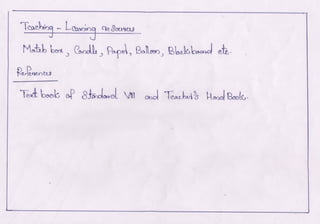 Teaching - Learning resources
Match box, Candle, Paper, Balloon, Blackboard etc.
References
Text book of Standard VIII and Teacher's Hand Book.